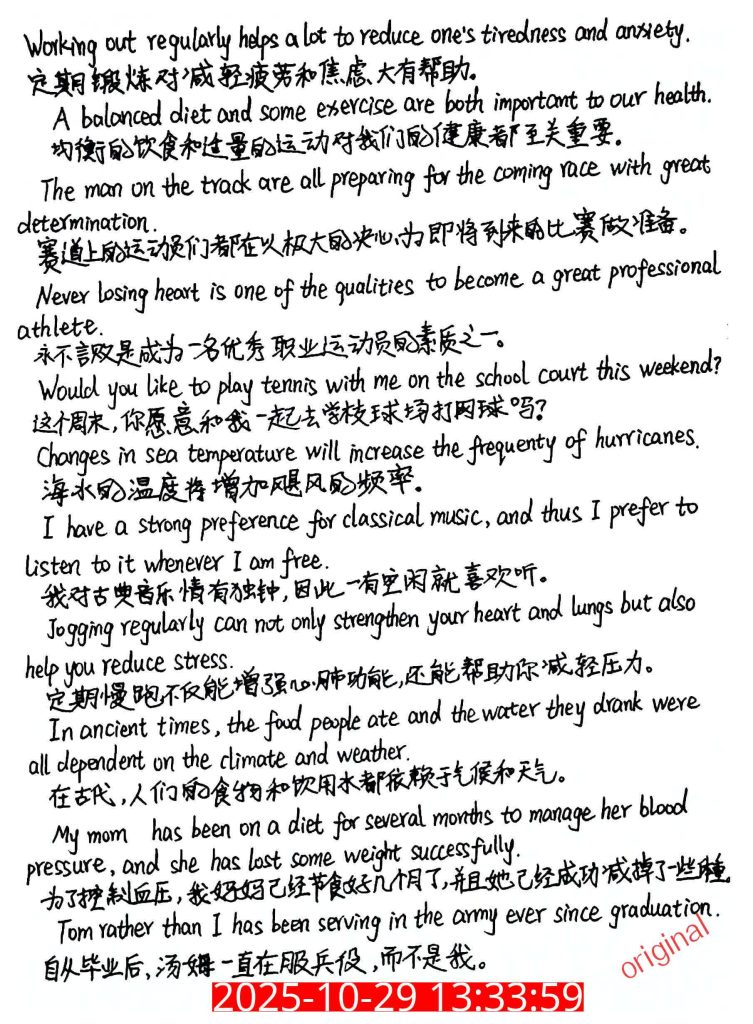 Working out regularly helps a lot to reduce one's tiredness and anxiety.
定期锻炼对减轻疲劳和焦虑大有帮助。
A balanced diet and some exercise are both important to our health.
均衡的饮食和过量的运动对我们的健康都至关重要。
The man on the track are all preparing for the coming race with great
determination.
赛道上的运动员们都在以极大的决心为即将到来的比赛做准备。
Never losing heart is one of the qualities to become a great professional
athlete.
永不言败是成为一名优秀职业运动员的素质之一。
Would you like to play tennis with me on the school court this weekend?
这个周末，你愿意和我一起去学校球场打网球吗？
Changes in sea temperature will increase the frequenty of hurricanes.
海水的温度将增加飓风的频率。
I have a strong preference for classical music, and thus I prefer to
listen to it whenever I am free.
我对古典音乐情有独钟，因此一有空闲就喜欢听。
Jogging regularly can not only strengthen your heart and lungs but also
help you reduce stress.
定期慢跑不仅能增强心肺功能，还能帮助你减轻压力。
In ancient times, the food people ate and the water they drank were
all dependent on the climate and weather.
在古代，人们的食物和饮用水都依赖于气候和天气。
My mom has been on a diet for several months to manage her blood
pressure, and she has lost some weight successfully.
为了控制血压，我妈妈已经节食好几个月了，并且她已经成功减掉了一些
Tom rather than I has been serving in the army ever since graduation.
自从毕业后，汤姆一直在服兵役，而不是我。
original
2025-10-29 13:33:59